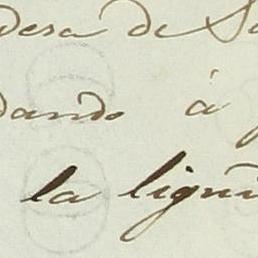 dera de
dando à
la lign